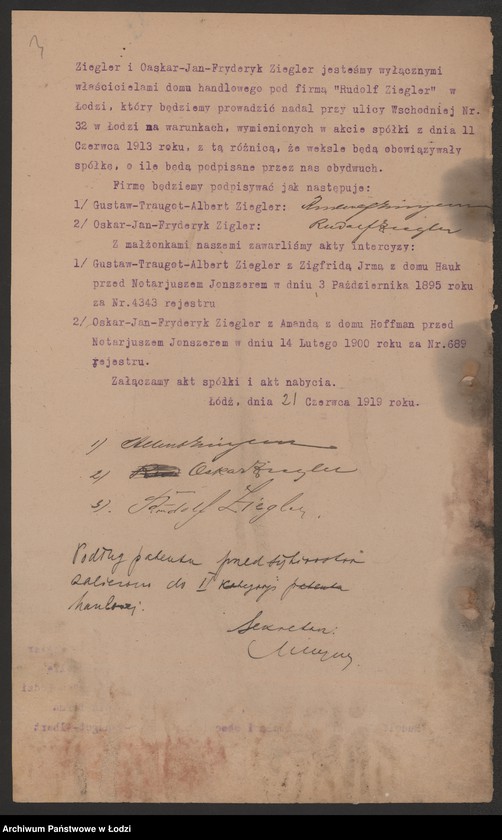 Ziegler i Oaskar-Jan-Fryderyk Ziegler jesteśmy wyłącznymi
właścicielami domu handlowego pod firmą "Rudolf Ziegler" w
Łodzi, który będziemy prowadzić nadal przy ulicy Wschodniej Nr.
32 w Łodzi na warunkach, wymienionych w akcie spółki z dnia 11
Czerwca 1913 roku, z tą różnicą, że weksle będą obowiązywały
spółkę, o ile będą podpisane przez nas obydwuch.
Firmę będziemy podpisywać jak następuje:
1/ Gustaw-Traugot-Albert Ziegler:
2/ Oskar-Jan-Fryderyk Zigler: Rudolf Ziegler
Z małżonkami naszemi zawarliśmy akty intercyzy:
1/ Gustaw-Traugot-Albert Ziegler z Zigfridą Jrmą z domu Hauk
przed Notarjuszem Jonszerem w dniu 3 Października 1895 roku
za Nr.4343 rejestru
2/ Oskar-Jan-Fryderyk Ziegler z Amandą z domu Hoffman przed
Notarjuszem Jonszerem w dniu 14 Lutego 1900 roku za Nr.689
rejestru.
Załączamy akt spółki i akt nabycia.
Łódź, dnia 21 Czerwca 1919 roku.
1)
2) Oskar Ziegler
3). Rudolf Ziegler.
Podług patentu
zaliczono do II kategorji
handlowej.
Sekretarz:
Archiwum Państwowe w Łodzi